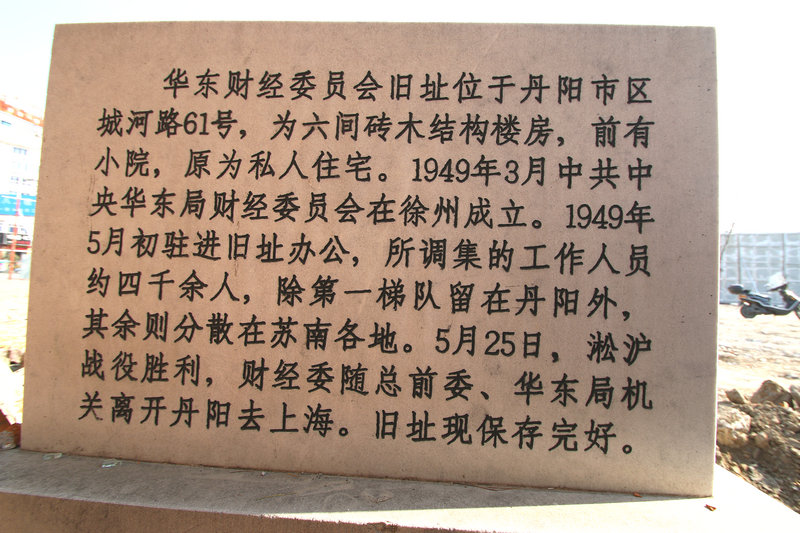 华东财经委员会旧址位于丹阳市区
城河路61号，为六间砖木结构楼房，前有
小院，原为私人住宅。1949年3月中共中
央华东局财经委员会在徐州成立。1949年
5月初驻进旧址办公，所调集的工作人员
约四千余人，除第一梯队留在丹阳外，
其余则分散在苏南各地。5月25日，淞沪
战役胜利，财经委随总前委、华东局机
关离开丹阳去上海。旧址现保存完好。